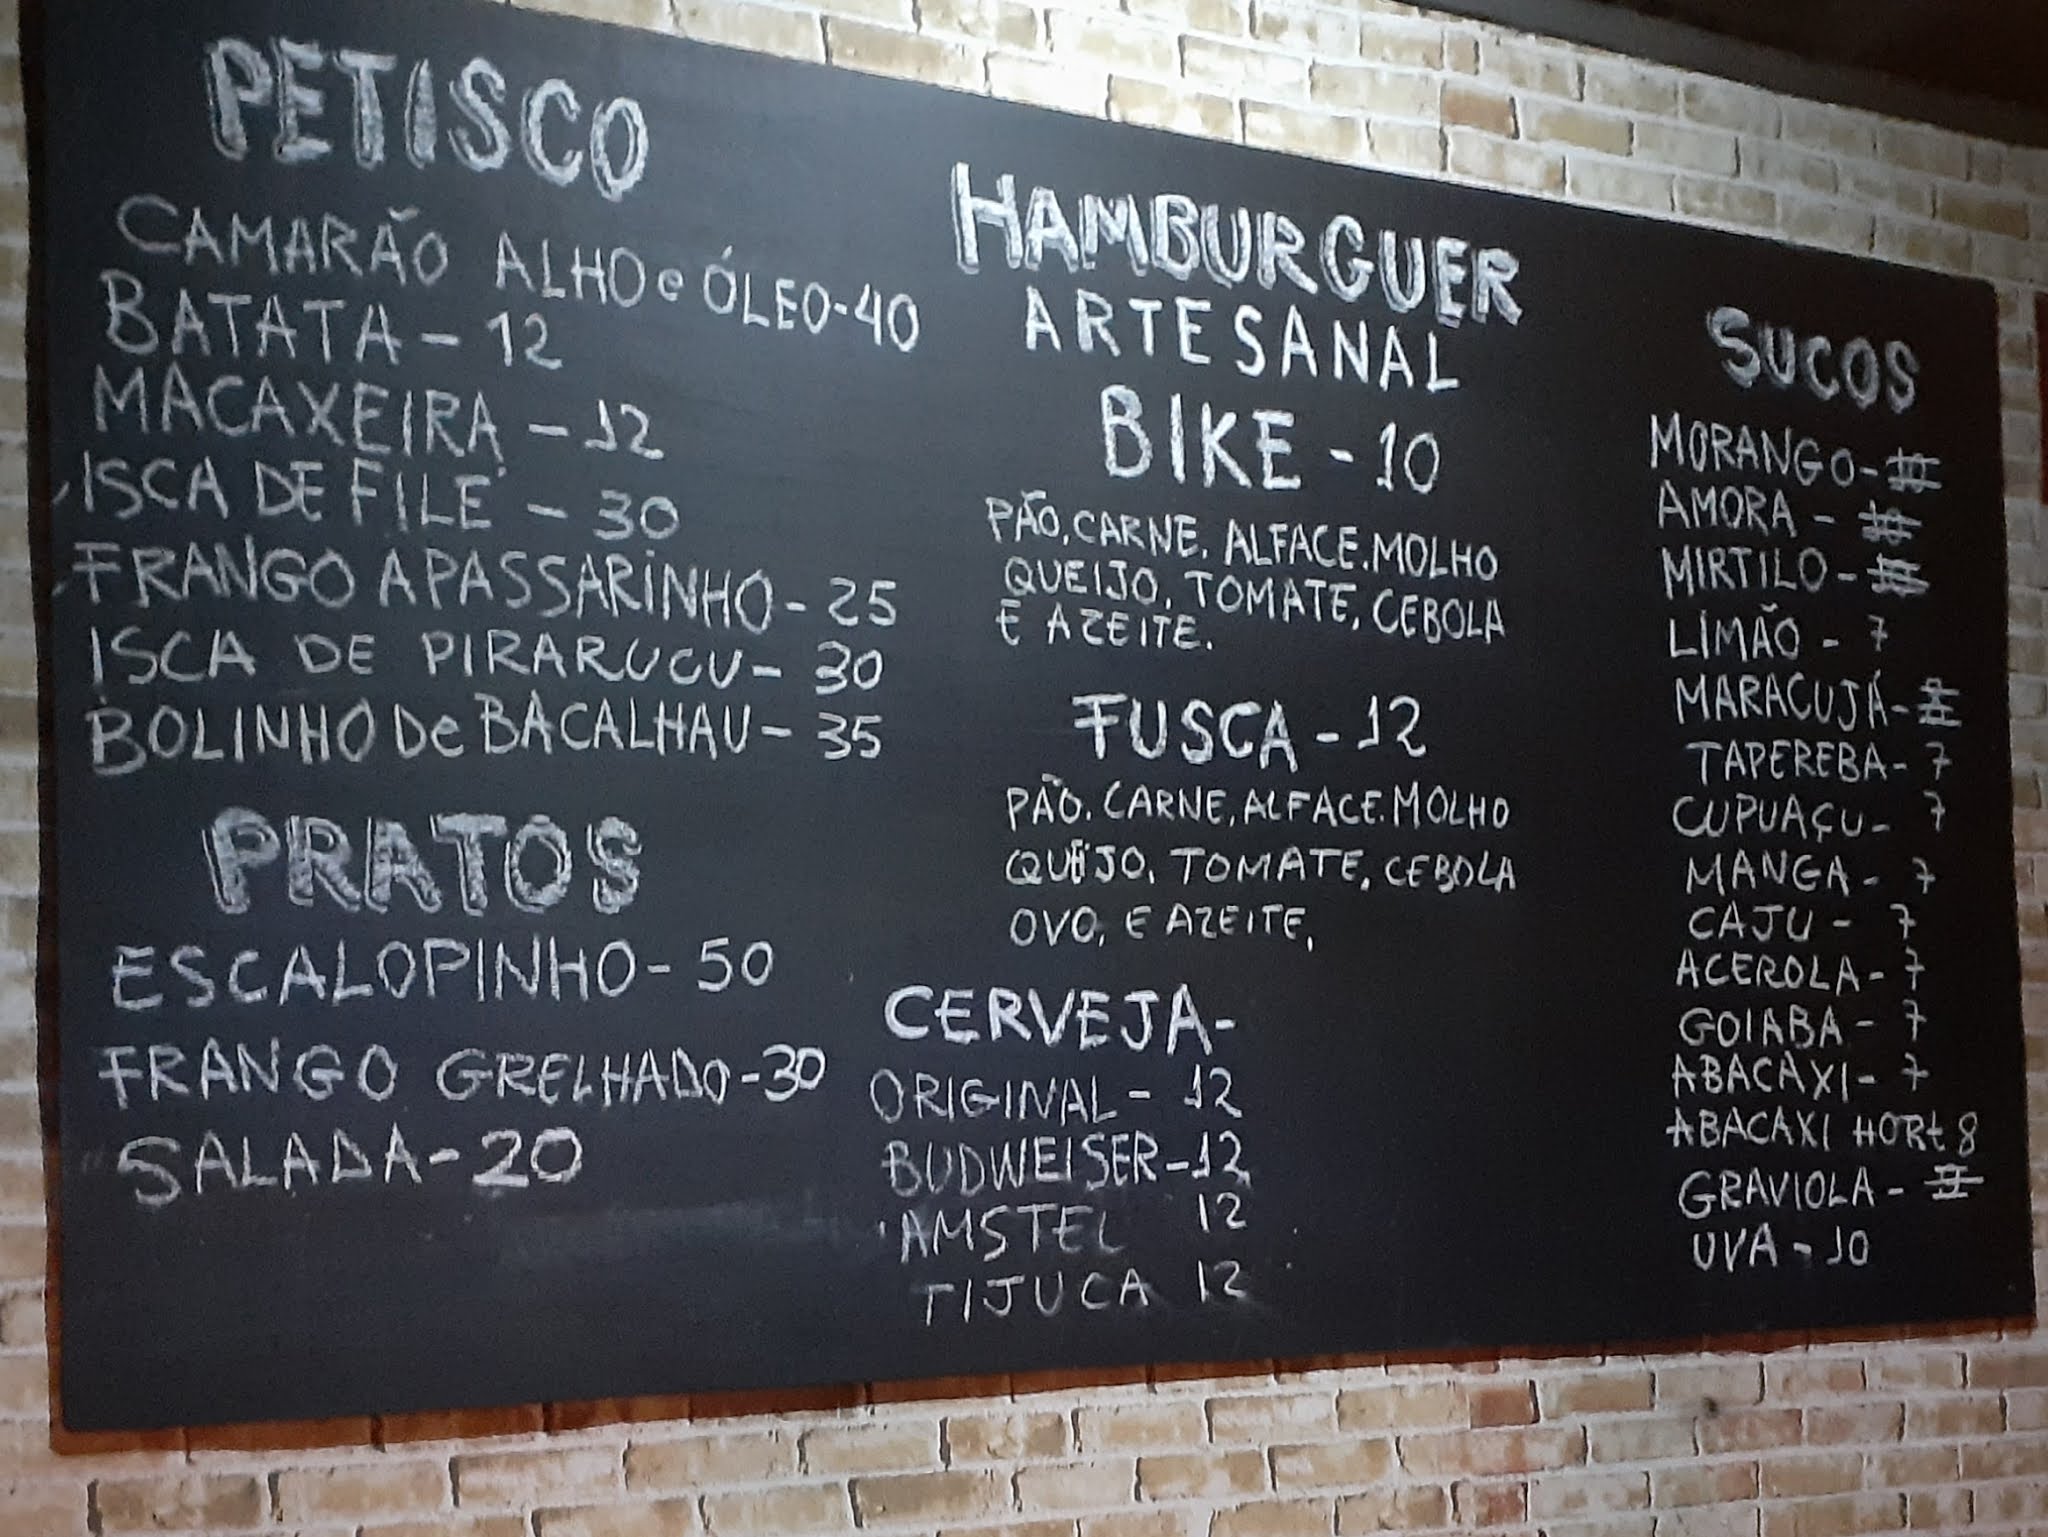 PETISCO
CAMARÃO ALHO e ÓLEO-40
BATATA - 12
MACAXEIRA - 12
ISCA DE FILÉ - 30
FRANGO APASSARINHO - 25
ISCA DE PIRARUCU - 30
BOLINHO De BACALHAU - 35
PRATOS
ESCALOPINHO - 50
FRANGO GRELHADO - 30
SALADA - 20
HAMBURGUER
ARTESANAL
BIKE - 10
PÃO, CARNE, ALFACE, MOLHO
QUEIJO, TOMATE, CEBOLA
E AZEITE.
FUSCA - 12
PÃO. CARNE, ALFACE. MOLHO
QUEIJO, TOMATE, CEBOLA
OVO, E AZEITE,
CERVEJA -
ORIGINAL - 12
BUDWEISER - 12
AMSTEL 12
TIJUCA 12
SUCOS
MORANGO -
AMORA -
MIRTILO -
LIMÃO - 7
MARACUJÁ -
TAPEREBA - 7
CUPUAÇU - 7
MANGA - 7
CAJU - 7
ACEROLA - 7
GOIABA - 7
ABACAXI - 7
ABACAXI HORT 8
GRAVIOLA -
UVA - 10